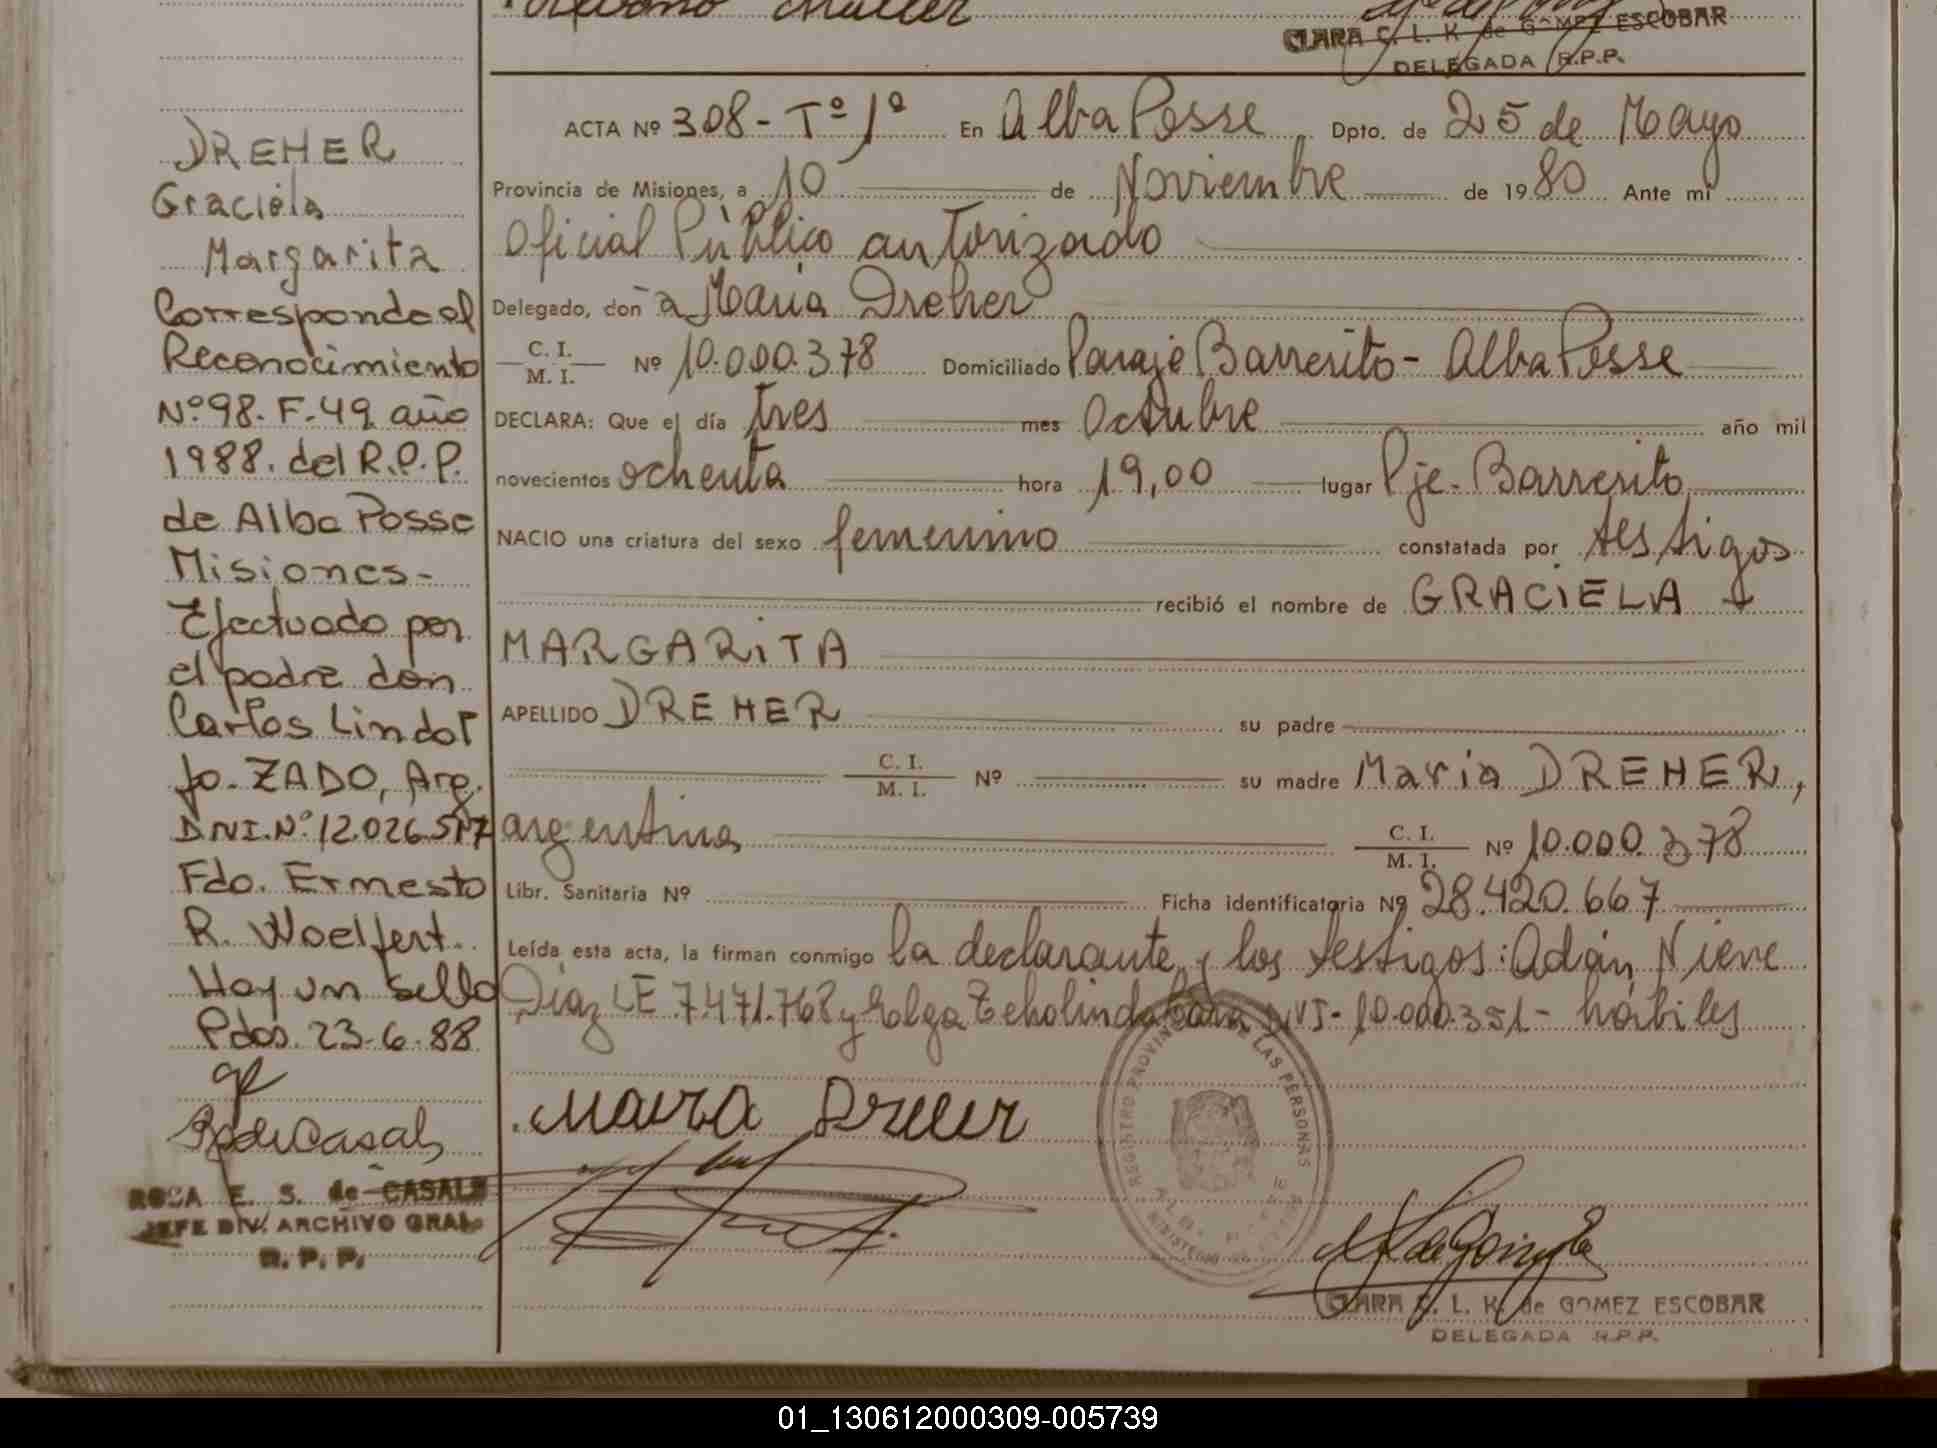 CLARA C. L. K. de GOMEZ ESCOBAR
DELEGADA R.P.P.
DREHER
Graciela
Margarita
Corresponde al
Reconocimiento
Nº 98. F. 49 año
1988. del R.P.P.
de Alba Posse
Misiones-
Efectuado por
el padre don
Carlos Lindol
fo. ZADO, Arg.
DNI. Nº 12.026.517
Fdo. Ernesto
R. Woelfert.
Hay un sello
Pdos. 23-6-88
ROSA E. S. de CASALS
JEFE DIV. ARCHIVO GRAL.
R. P. P.
ACTA Nº 308 - Tº 1º En Alba Posse Dpto. de 25 de Mayo
Provincia de Misiones, a 10 de Noviembre de 1980 Ante mi
Oficial Público autorizado
Delegado, don a Maria Dreher
C. I. M. I. Nº 10.000.378 Domiciliado Paraje Barrerito - Alba Posse
DECLARA: Que el día tres mes Octubre año mil
novecientos ochenta hora 19,00 lugar Pje. Barrerito
NACIO una criatura del sexo femenino constatada por testigos
recibió el nombre de GRACIELA
MARGARITA
APELLIDO DREHER su padre
C. I. M. I. Nº su madre Maria DREHER,
argentina C. I. M. I. Nº 10.000.378
Libr. Sanitaria Nº Ficha identificatoria Nº 28.420.667
Leída esta acta, la firman conmigo la declarante y los testigos: Adán Niene
Diaz LE 7.471.768 y DNI- 10.000.351- hábiles
Maria Dreher
REGISTRO PROVINCIAL DE LAS PERSONAS
CLARA C. L. K. de GOMEZ ESCOBAR
DELEGADA R.P.P.
01_130612000309-005739